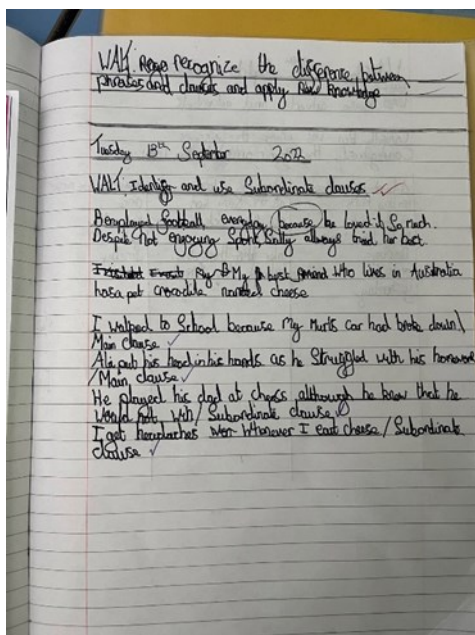 WALT recognize the difference between
phrases and clauses and apply knowledge
Tuesday 13th September 2022
WALT Identify and use Subordinate clauses
Ben played football, everyday, because he loved it So much.
Despite not enjoying Sport, Sally always tried her best.
My best friend who lives in Australia
has a pet crocodile named cheese
I walked to School because My Mums car had broke down/
Main clause
Ali put his head in his hands as he Struggled with his homework
/Main clause
He played his dad at chess although he knew that he
would not win/ Subordinate clause
I get headaches Whenever I eat cheese / Subordinate
clause